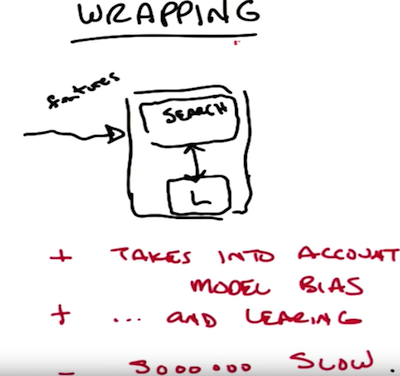 WRAPPING
features
SEARCH
L
+ TAKES INTO ACCOUNT
MODEL BIAS
+ ... AND LEARING
- SOOOOOOO SLOW.